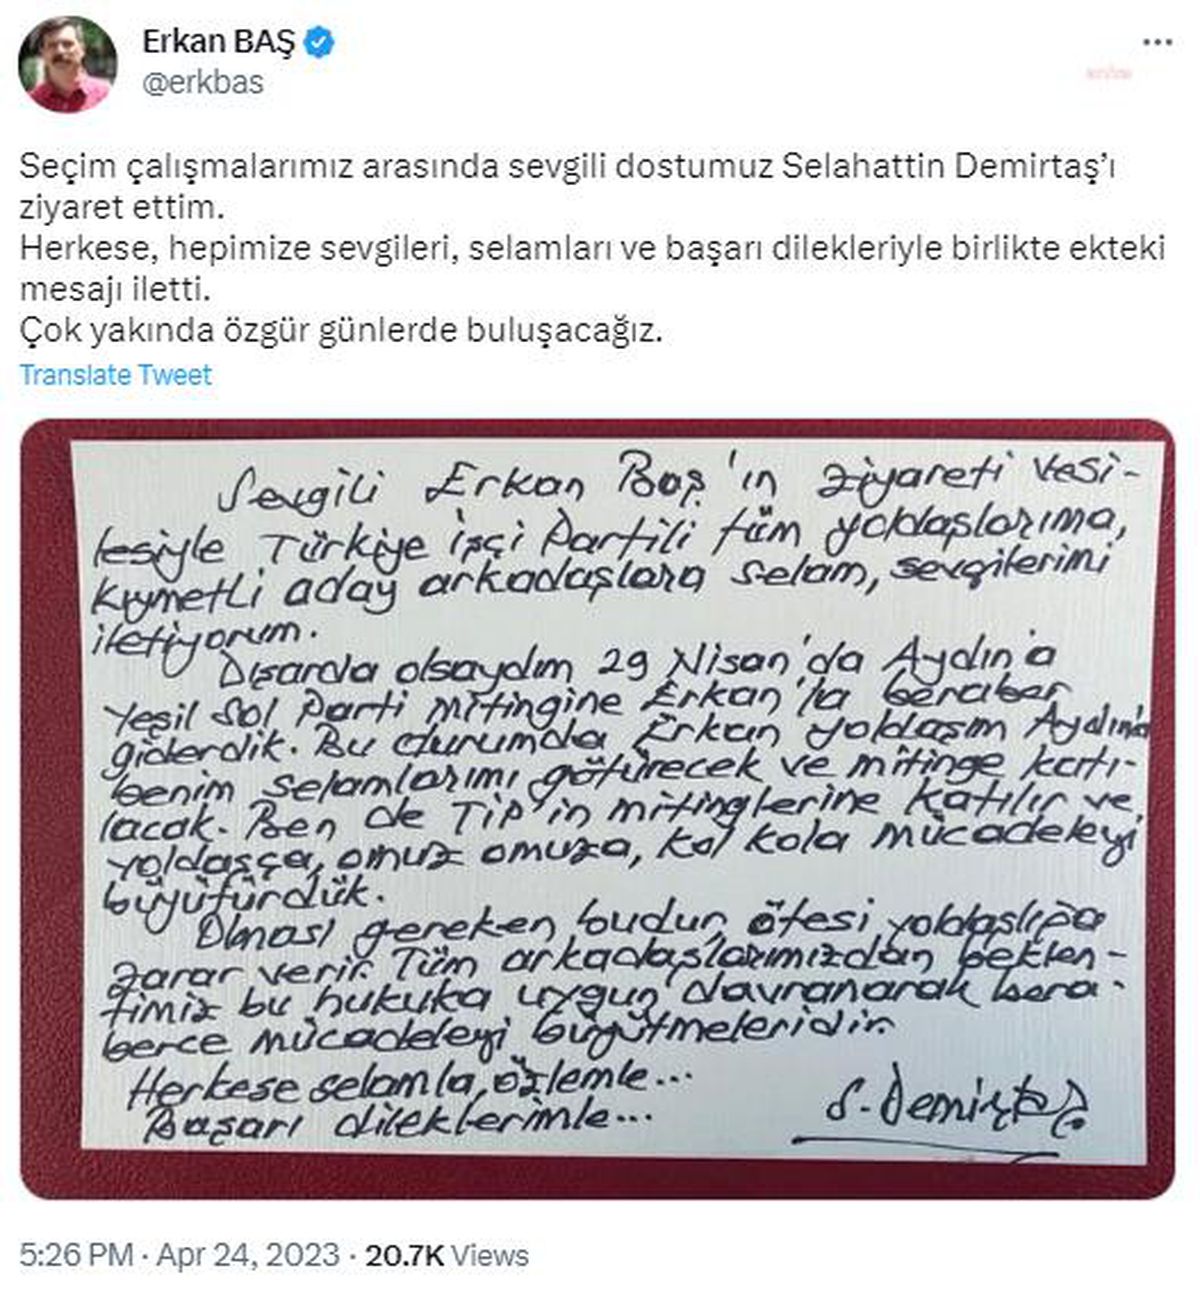 Erkan BAŞ
@erkbas
Seçim çalışmalarımız arasında sevgili dostumuz Selahattin Demirtaş’ı
ziyaret ettim.
Herkese, hepimize sevgileri, selamları ve başarı dilekleriyle birlikte ekteki
mesajı iletti.
Çok yakında özgür günlerde buluşacağız.
Translate Tweet
Sevgili Erkan Baş'ın ziyareti vesi-
lesiyle Türkiye İşçi Partili tüm yoldaşlarıma,
kıymetli aday arkadaşlara selam, sevgilerimi
iletiyorum.
Dışarda olsaydım 29 Nisan'da Aydın'a
Yeşil Sol Parti mitingine Erkan'la beraber
giderdik. Bu durumda Erkan yoldaşım Aydın'a
benim selamlarımı götürecek ve mitinge katı-
lacak. Ben de TİP'in mitinglerine katılır ve
yoldaşça, omuz omuza, kol kola mücadeleyi
büyütürdük.
Olması gereken budur, ötesi yoldaşlığa
zarar verir. Tüm arkadaşlarımızdan beklen-
timiz bu hukuka uygun davranarak bera-
berce mücadeleyi büyütmeleridir.
Herkese selamla, özlemle...
Başarı dileklerimle...
S. Demirtaş
5:26 PM · Apr 24, 2023 · 20.7K Views